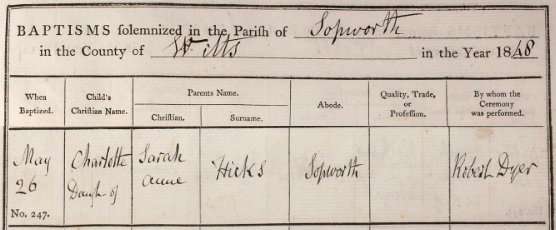 BAPTISMS solemnized in the Parish of Sopworth
in the County of Wilts in the Year 1848
When Baptized. Child's Christian Name. Parents Name. Abode. Quality, Trade, or Profession. By whom the Ceremony was performed.
Christian. Surname.
May 26 Charlotte Daugh. of Sarah Anne Hicks Sopworth Robert Dyer
No. 247.